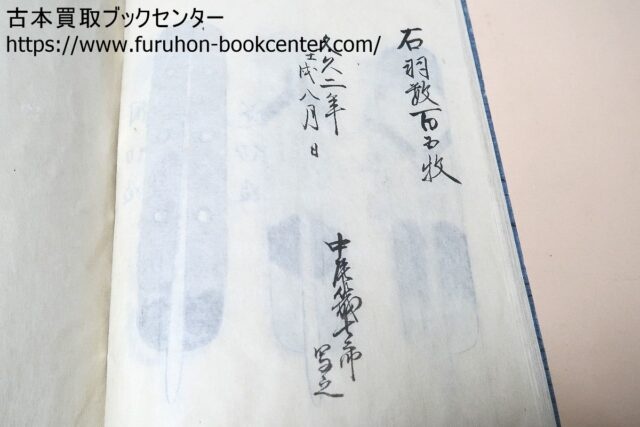 古本買取ブックセンター
https://www.furuhon-bookcenter.com/
石羽数百五枚
文久二年
壬戌八月日
中 七郎
写之